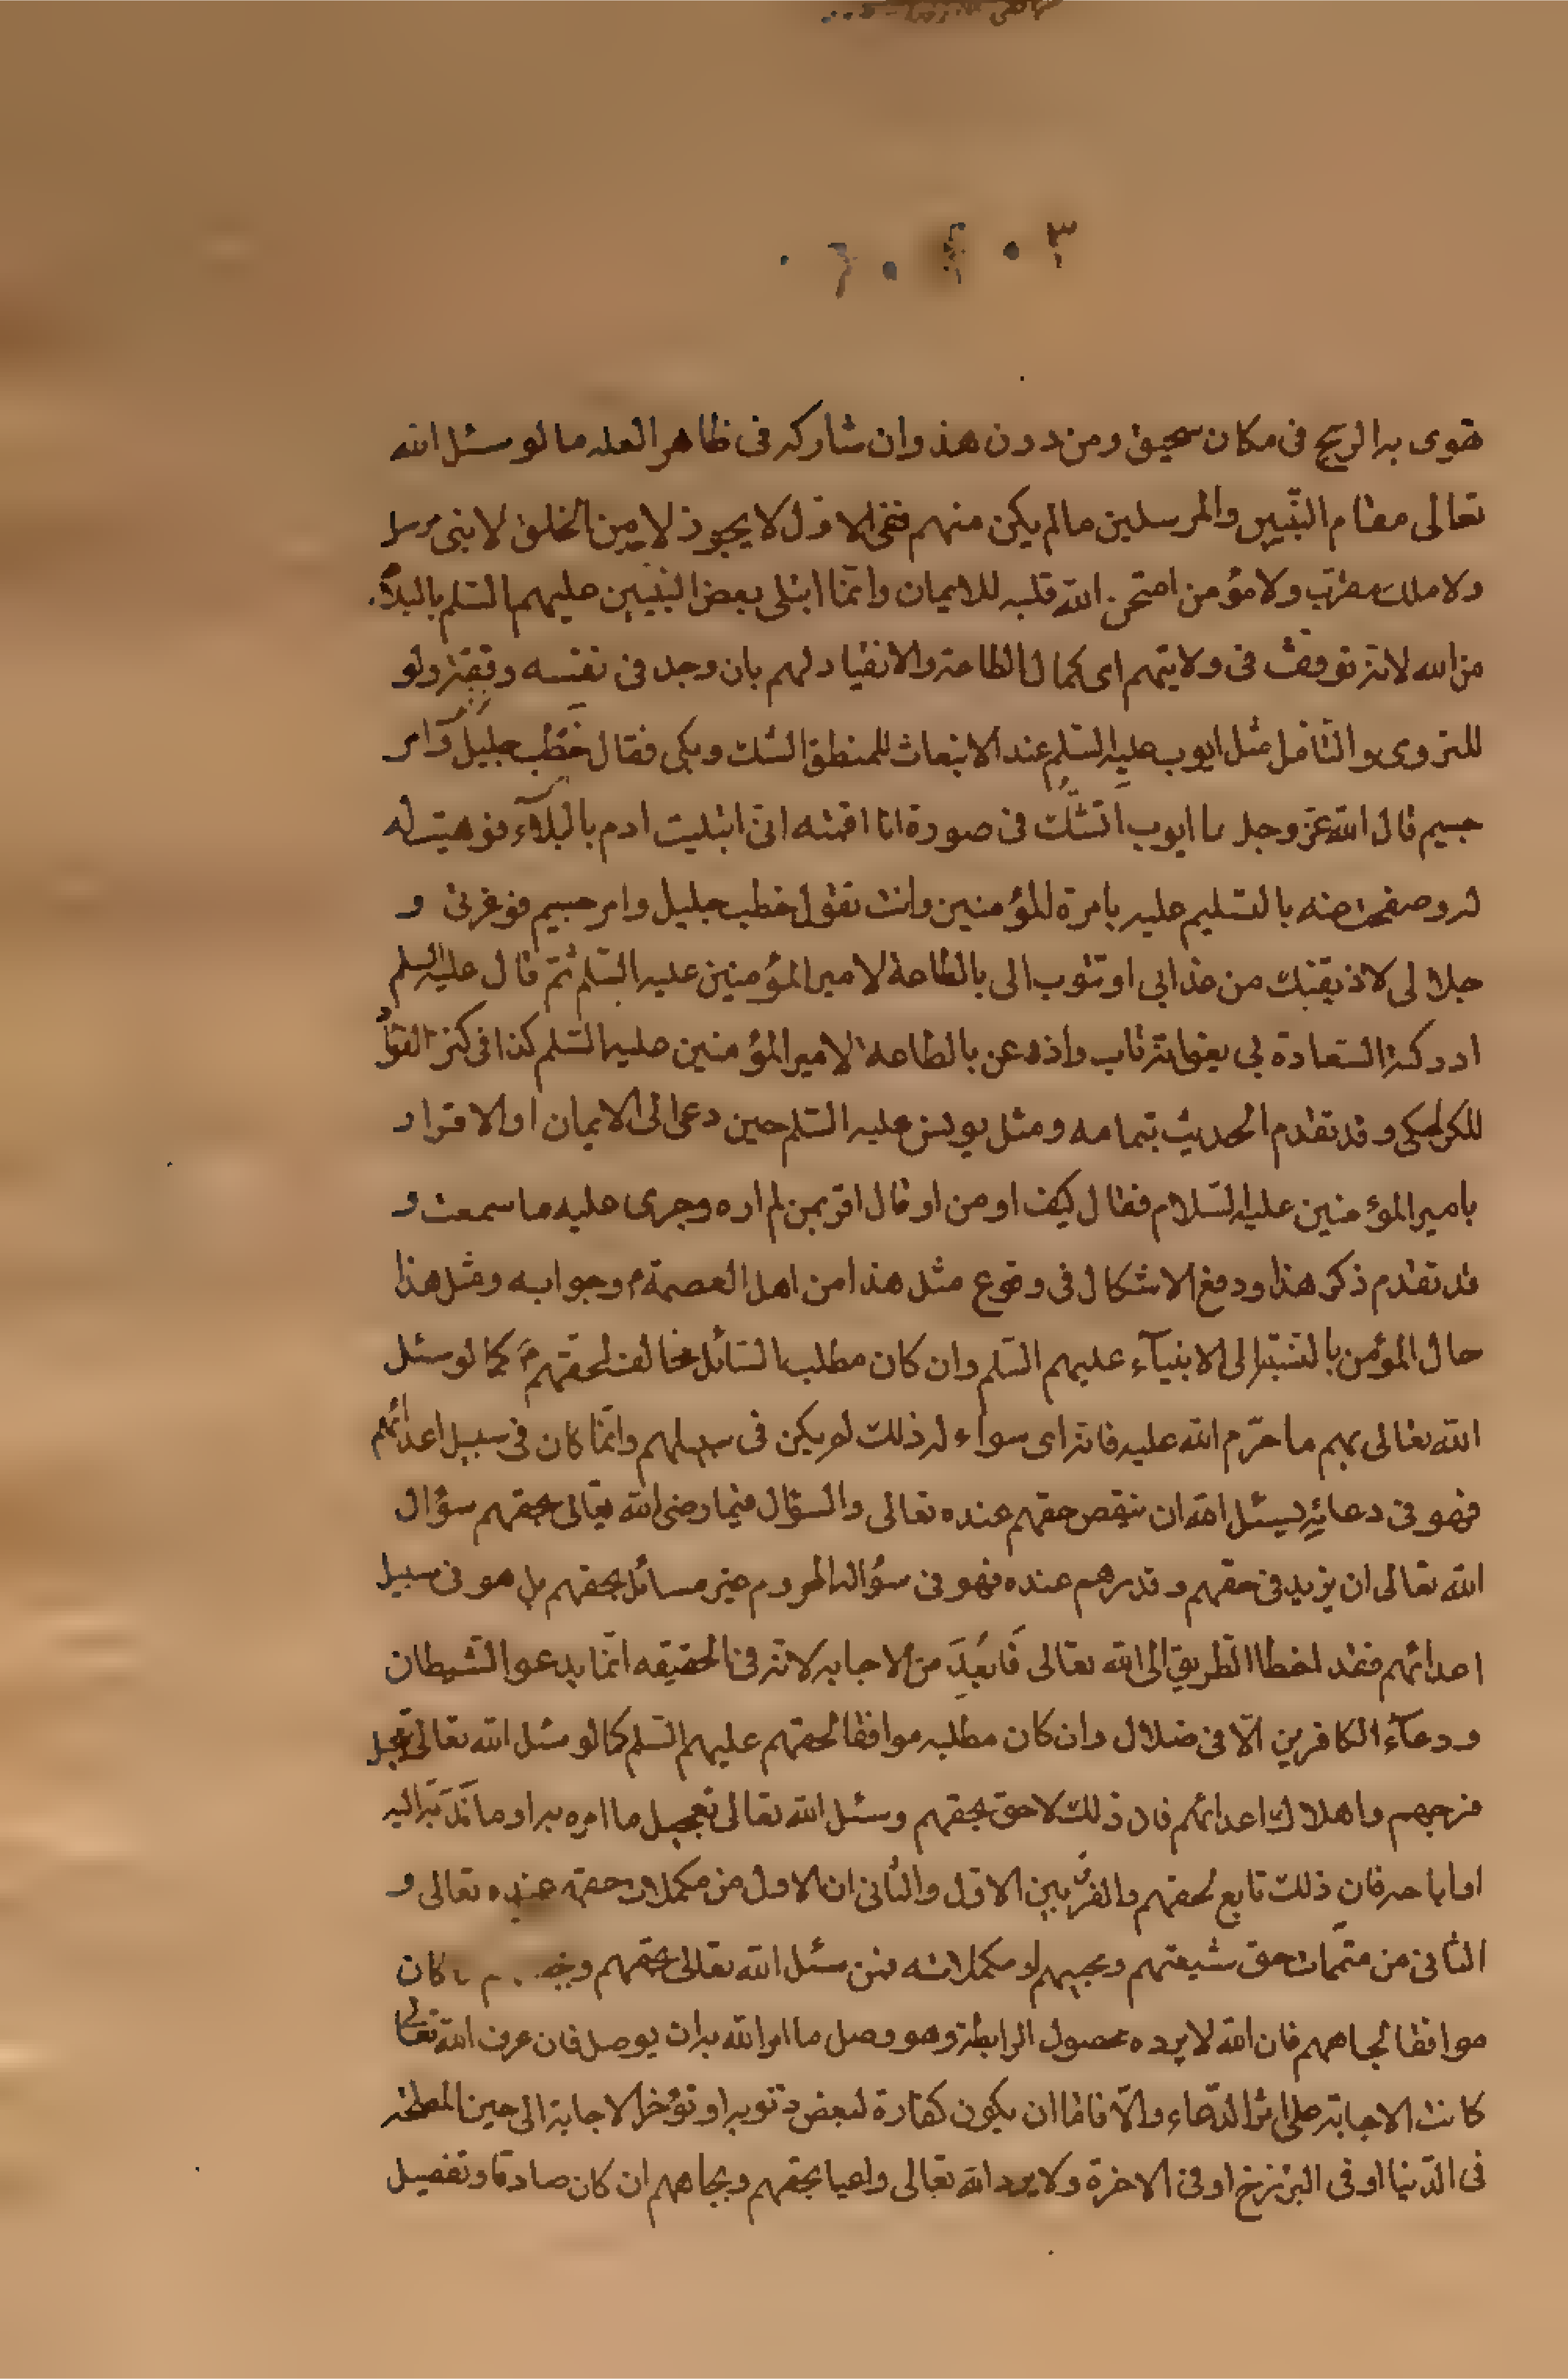 هوى به الريح فى مكان سحيق ومن دون هذ وان شاركه فى ظاهر العله ما لو سئل الله
تعالى مقام النّبيين والمرسلين ما لم يكن منهم ففى الاوّل لا يجوز لا من الخلق لا نبى مرسل
ولا ملك مقرّب ولا مؤمن امتحن الله قلبه للايمان وانّما ابتلى بعض النبيين عليهم السّلم بالبلآء
من الله لانّه توقف فى ولايتهم اى كمال الطاعة والانقياد لهم بان وجد فى نفسه وقفة ولو
للتروى والتأمّل مثل ايوب عليه السّلم عند الانبعاث للمنطق الشك وبكى فقال خطب جليل وامر
جسيم قال الله عزّ وجل يا ايوب اتشكّ فى صورة انا اقمته انى ابتليت ادم بالبلآء فوهبته له
له وصفحت عنه بالتسليم عليه بامرة المؤمنين وانت تقول خطب جليل وامر جسيم فوعزتى و
جلالى لاذيقنك من عذابى او تتوب الى بالطاعة لامير المؤمنين عليه السّلم ثمّ قال عليه السلم
ادركته السّعادة بى يعنى انه تاب واذعن بالطاعة لامير المؤمنين عليه السّلم كذا فى كنز الفوائد
للكراجكى وقد تقدم الحديث بتمامه ومثل يونس عليه السّلم حين دعى الى الايمان او الاقرار
بامير المؤمنين عليه السّلام فقال كيف اومن او قال اقر بمن لم اره وجرى عليه ما سمعت و
قد تقدم ذكر هذا ودفع الاشكال فى وقوع مثل هذا من اهل العصمة ع وجوابه ومثل هذا
حال المؤمن بالنسبة الى الانبيآء عليهم السّلم وان كان مطلب السّائل مخالفا لحقهم ع كما لو سئل
الله تعالى بهم ما حرّم الله عليه فانه اى سواء له ذلك لم يكن فى سبيلهم وانّما كان فى سبيل اعدائهم
فهو فى دعائه يسئل الله ان ينقص حقهم عنده تعالى والسؤال فيما رضى الله تعالى بحقهم سؤال
الله تعالى ان يزيد فى حقهم وقدرهم عنده فهو فى سؤاله المحروم غير مسائل بحقهم بل هو فى سبيل
اعدائهم فقد اخطا الطريق الى الله تعالى فابعد من الاجابه لانه فى الحقيقه انّما يدعو الشيطان
ودعآء الكافرين الّا فى ضلال وان كان مطلبه موافقا لحقهم عليهم السّلم كما لو سئل الله تعالى تعجيل
فرجهم واهلاك اعدائهم فان ذلك لاحق بحقهم وسئل الله تعالى تعجيل ما امره به او ما ندبه اليه
او اباحه فان ذلك تابع لحقهم والفرق بين الاوّل والثانى ان الاول من مكملات حقهم عنده تعالى و
الثانى من متمّمات حق شيعتهم ومحبيهم او مكملاته فمن سئل الله تعالى بحقهم كان
موافقا لجاههم فان الله لا يرده لحصول الرابطة وهو وصل ما امر الله به ان يوصل فان عرف الله تعالى
كانت الاجابة على اثر الدّعاء والّا فامّا ان يكون كفارة لبعض ذنوبه او تؤخر الاجابة الى حين المصلحة
فى الدّنيا او فى البرزخ او فى الاخرة ولا يرد الله تعالى داعيا بحقهم وبجاههم ان كان صادقا وتفصيل